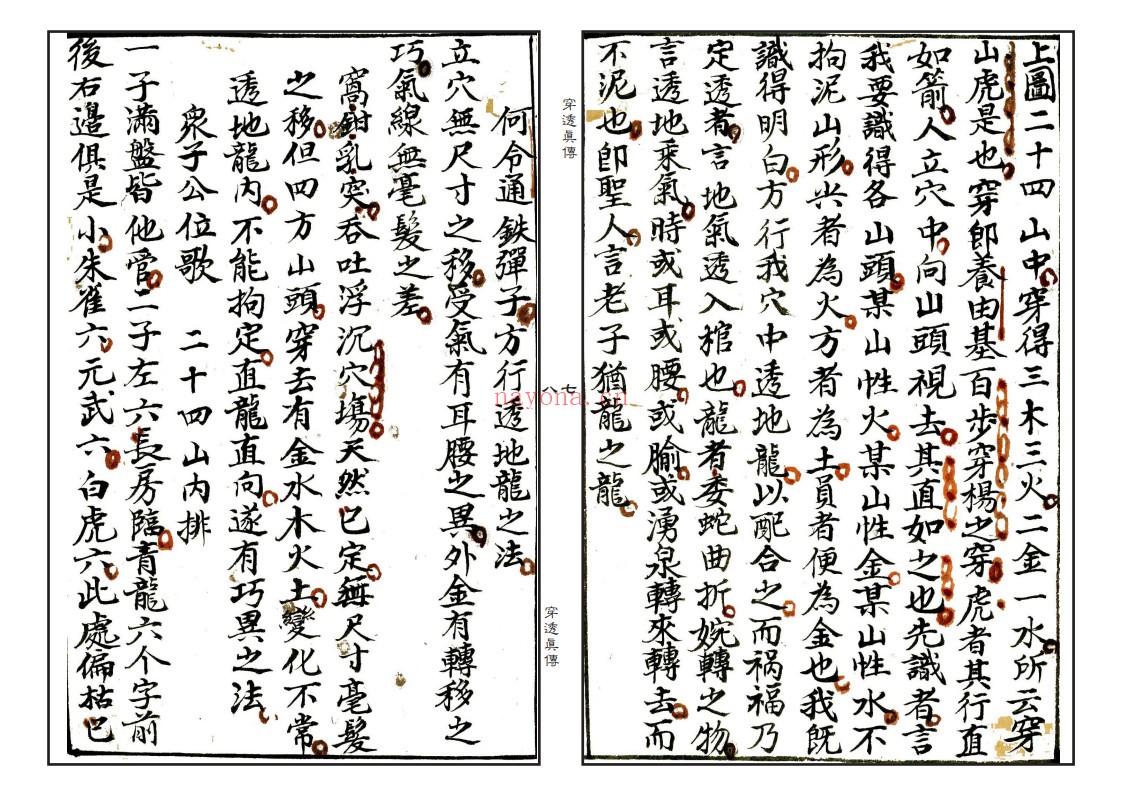 上圖二十四山中穿得三木三火二金一水所云穿
山虎是也穿即養由基百步穿楊之穿虎者其行直
如箭人立穴中向山頭視去其直如之也先識者言
我要識得各山頭某山性火某山性金某山性水不
拘泥山形尖者為火方者為土員者便為金也我既
識得明白方行我穴中透地龍以配合之而禍福乃
定透者言地氣透入棺也龍者委蛇曲折婉轉之物
言透地乘氣時或耳或腰或腧或湧泉轉來轉去而
不泥也即聖人言老子猶龍之龍
穿透眞傳
七八
穿透眞傳
何令通鉄彈子方行透地龍之法
立穴無尺寸之移受氣有耳腰之異外金有轉移之
巧氣線無毫髮之差
窩鉗乳突吞吐浮沉穴塲天然已定無尺寸毫髮
之移但四方山頭穿去有金水木火土變化不常
透地龍內不能拘定直龍直向遂有巧異之法
衆子公位歌 二十四山內排
一子滿盤皆他管二子左六長房臨青龍六个字前
後右邊俱是小朱雀六元武六白虎六此處偏枯已
nayona.cn